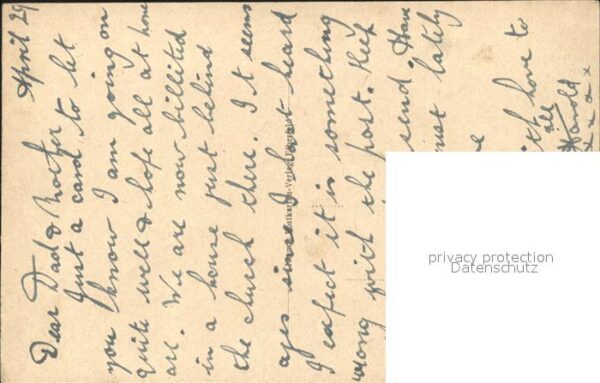 April 29
Dear Dad & Mother
Just a card to let
you know I am going on
quite well & hope all at home
are. We are now billited
in a house just behind
the church there. I t seems
ages since I have heard
I expect it is something
wrong with the post. Keep
send. Have
lately
with love to
all
Harold
x x x x
privacy protection
Datenschutz